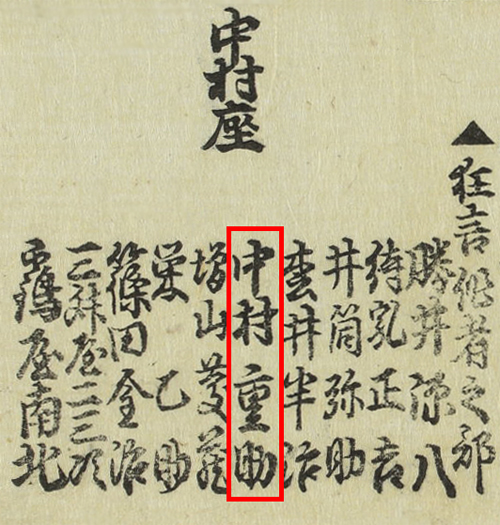 中村座
▲狂言作者之部
勝井源八
待乳正吉
井筒弥助
井半治
中村重助
増山
栄乙助
篠田金治
三升屋二三次
靏屋南北